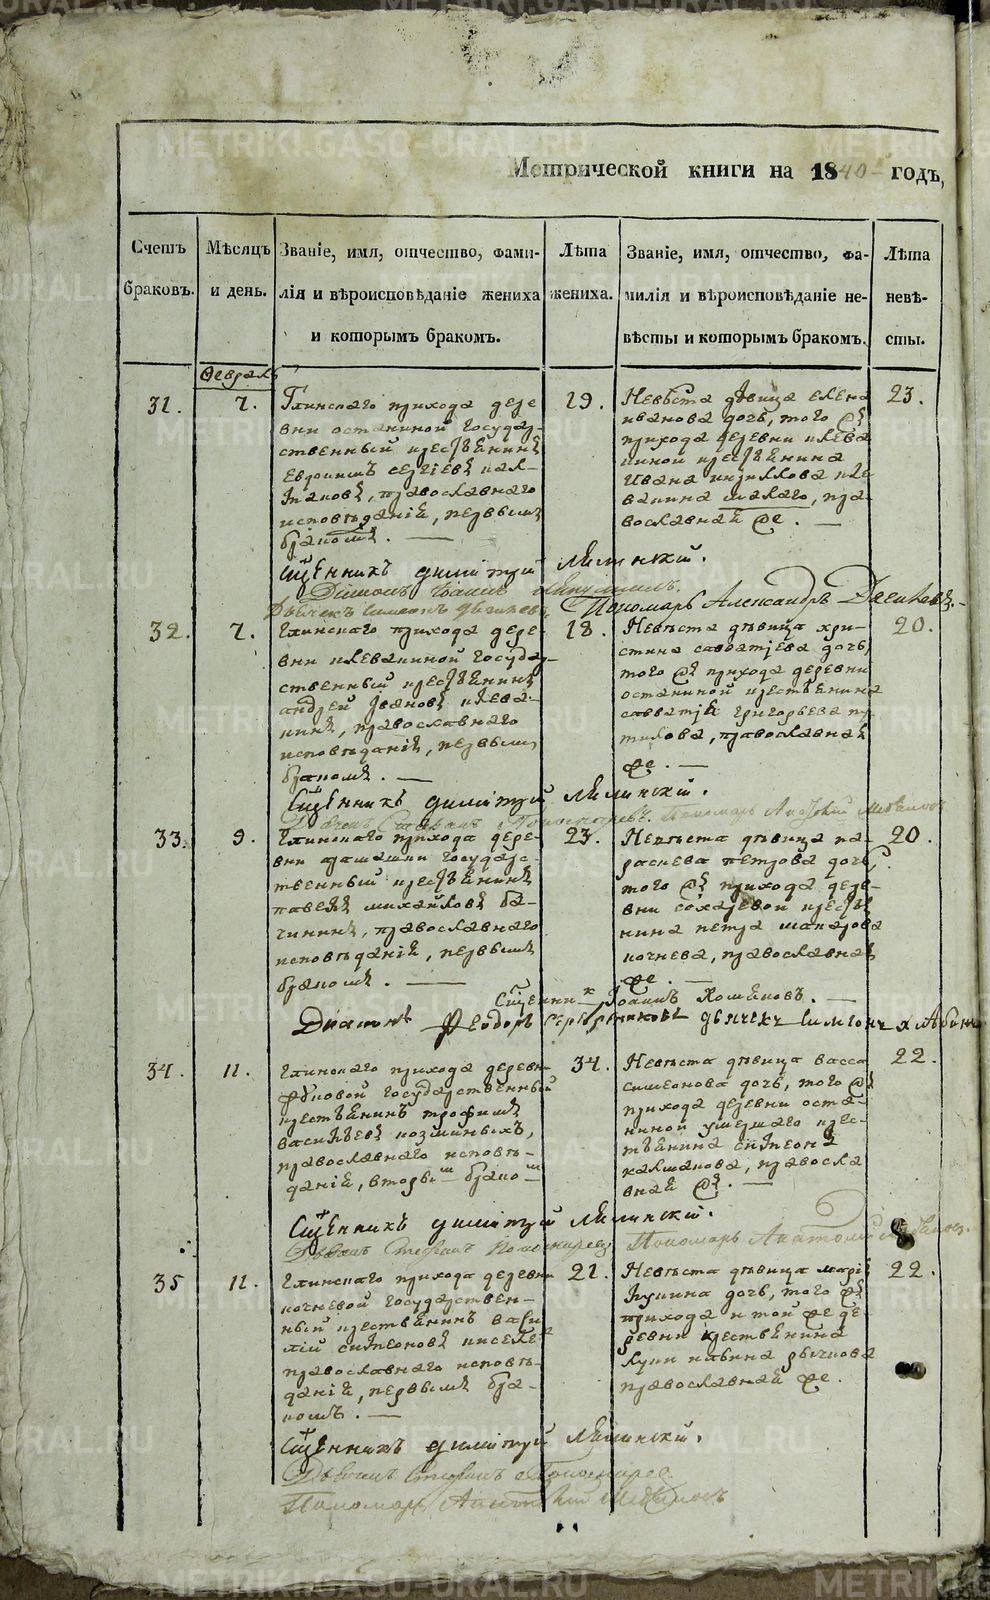 Метрической книги на 1840 годъ,
Счетъ браковъ.
Мѣсяцъ и день.
Званіе, имя, отчество, фами-
лія и вѣроисповѣданіе жениха
и которымъ бракомъ.
Лѣта жениха.
Званіе, имя, отчество, фа-
милія и вѣроисповѣданіе не-
вѣсты и которымъ бракомъ.
Лѣта невѣ-
сты.
Февраль
31.
7.
Глинскаго прихода дере
вни останиной государ-
ственный крестьянинъ
сергіевъ кал-
православнаго
исповѣданія, первымъ
бракомъ.
19.
Невѣста дѣвица елена
иванова дочь, того же
прихода деревни клева
киной крестьянина
Ивана кирилова кле
вакина малаго, пра-
вославная же.
23.
Священникъ димитрій
Діаконъ Іоаннъ
Пономарь Александръ
32.
7.
Глинскаго прихода дере-
вни клевакиной государ-
ственный крестьянинъ
андрей Ивановъ клева-
кинъ, православнаго
исповѣданія, первымъ
бракомъ.
18.
Невѣста дѣвица хри-
стина савватіева дочь,
того же прихода деревни
останиной крестьянина
савватія григорьева
православная
же.
20.
Священникъ димитрій
33.
9.
Глинскаго прихода дере-
вни государс-
твенный крестьянинъ
павелъ михайловъ ба-
чининъ, православнаго
исповѣданія, первымъ
бракомъ.
23.
Невѣста дѣвица па-
раскева петрова дочь,
того же прихода дере-
вни сохаревой крестья
нина петра макарова
кочнева, православная
же.
20.
Священникъ Іоаннъ Хомяковъ.
Діаконъ Феодоръ Серебрениковъ дьячекъ симеонъ
34.
11.
Глинскаго прихода деревни
государственный
крестьянинъ трофимъ
васильевъ козминыхъ,
православнаго исповѣ-
данія, вторымъ бракомъ
34.
Невѣста дѣвица васса
симеонова дочь, того же
прихода деревни оста-
ниной умершаго крес-
тьянина симеона
калмакова, правосла
вная же.
22.
Священникъ димитрій
Дьячекъ Стефанъ Пономаревъ
Пономарь
35
11.
Глинскаго прихода деревни
кочневой государствен-
ный крестьянинъ васи
лій симеоновъ киселевъ
православнаго исповѣ-
данія, первымъ бра-
комъ.
21.
Невѣста дѣвица марія
лукина дочь, того же
прихода и той же де-
ревни крестьянина
луки ильина рычкова
православная же.
22.
Священникъ димитрій
Дьячекъ Стефанъ Пономаревъ
Пономарь
METRIKI.GASO-URAL.RU